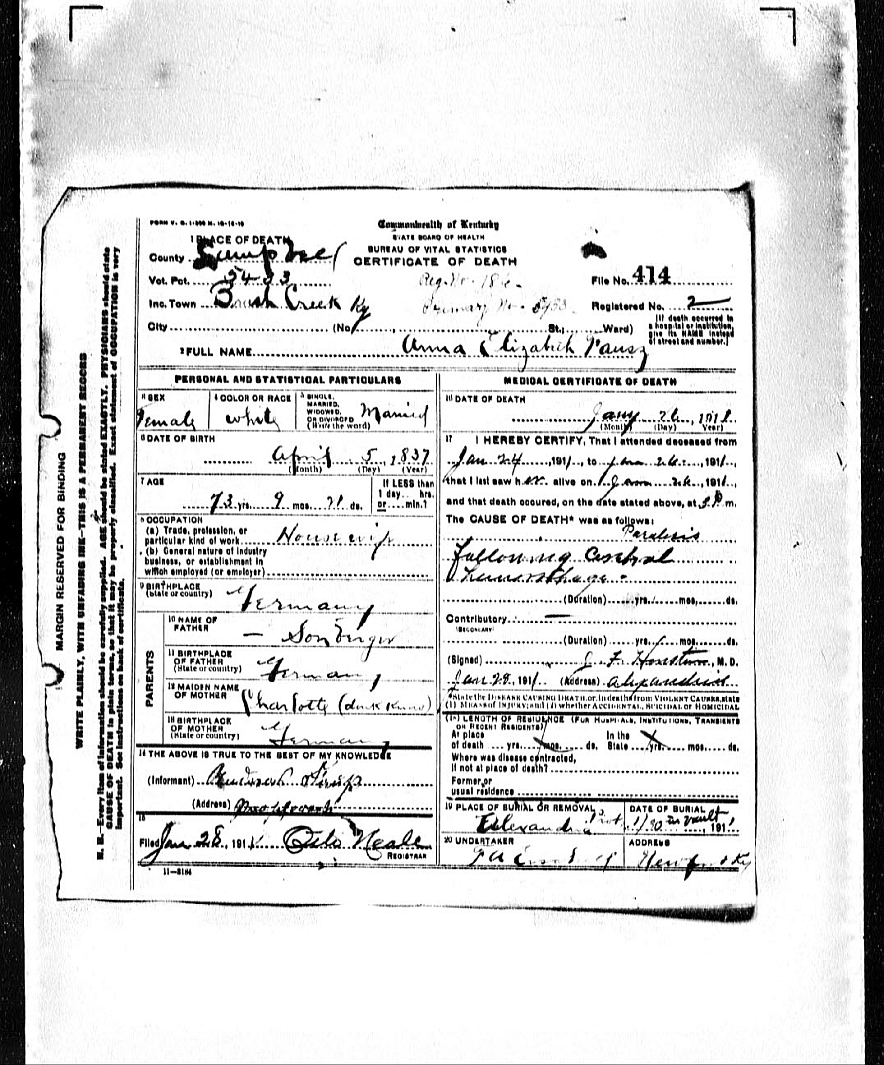 FORM V. S. 1-
Commonwealth of Kentucky
STATE BOARD OF HEALTH
BUREAU OF VITAL STATISTICS
CERTIFICATE OF DEATH
1 PLACE OF DEATH
County
Vot. Pct. 5433
Inc. Town Brush Creek Ky
City (No. , St., Ward)
Reg. No.
Primary No.
File No. 414
Registered No. 2
[If death occurred in a hospital or institution, give its NAME instead of street and number.]
2 FULL NAME Anna Elizabeth
PERSONAL AND STATISTICAL PARTICULARS
3 SEX Female
4 COLOR OR RACE White
5 SINGLE, MARRIED, WIDOWED, OR DIVORCED (Write the word) Married
6 DATE OF BIRTH
April 5, 1837
(Month) (Day) (Year)
7 AGE
73 yrs. 9 mos. 21 ds.
If LESS than 1 day hrs. or min.?
8 OCCUPATION
(a) Trade, profession, or particular kind of work Housewife
(b) General nature of industry business, or establishment in which employed (or employer)
9 BIRTHPLACE
(State or country) Germany
PARENTS
10 NAME OF FATHER
11 BIRTHPLACE OF FATHER
(State or country) Germany
12 MAIDEN NAME OF MOTHER Charlotte (dont know)
13 BIRTHPLACE OF MOTHER
(State or country) Germany
14 THE ABOVE IS TRUE TO THE BEST OF MY KNOWLEDGE
(Informant)
(Address)
15
Filed Jan 28, 1911 Neale
REGISTRAR
11—5184
MEDICAL CERTIFICATE OF DEATH
16 DATE OF DEATH
Jany 26, 1911
(Month) (Day) (Year)
17 I HEREBY CERTIFY, That I attended deceased from
Jan 24, 1911, to Jan 26, 1911,
that I last saw her alive on Jan 26, 1911,
and that death occured, on the date stated above, at m.
The CAUSE OF DEATH* was as follows:
Paralysis
following Cerebral
hemorrhage.
(Duration) yrs. mos. ds.
Contributory —
(SECONDARY)
(Duration) yrs. mos. ds.
(Signed) J. F. , M. D.
Jan 28, 1911 (Address) Alexandria
*State the DISEASE CAUSING DEATH, or, in deaths from VIOLENT CAUSES, state
(1) MEANS of INJURY; and (2) whether ACCIDENTAL, SUICIDAL or HOMICIDAL
18 LENGTH OF RESIDENCE (FOR HOSPITALS, INSTITUTIONS, TRANSIENTS OR RECENT RESIDENTS)
At place of death yrs. mos. ds. In the State yrs. mos. ds.
Where was disease contracted, if not at place of death?
Former or usual residence
19 PLACE OF BURIAL OR REMOVAL
Alexandria
DATE OF BURIAL
1/30 in vault, 1911
20 UNDERTAKER
ADDRESS
Newport Ky
MARGIN RESERVED FOR BINDING
WRITE PLAINLY, WITH UNFADING INK—THIS IS A PERMANENT RECORD
N. B.—Every item of information should be carefully supplied. AGE should be stated EXACTLY. PHYSICIANS should state
CAUSE OF DEATH in plain terms, so that it may be properly classified. Exact statement of OCCUPATION is very
important. See instructions on back of certificate.